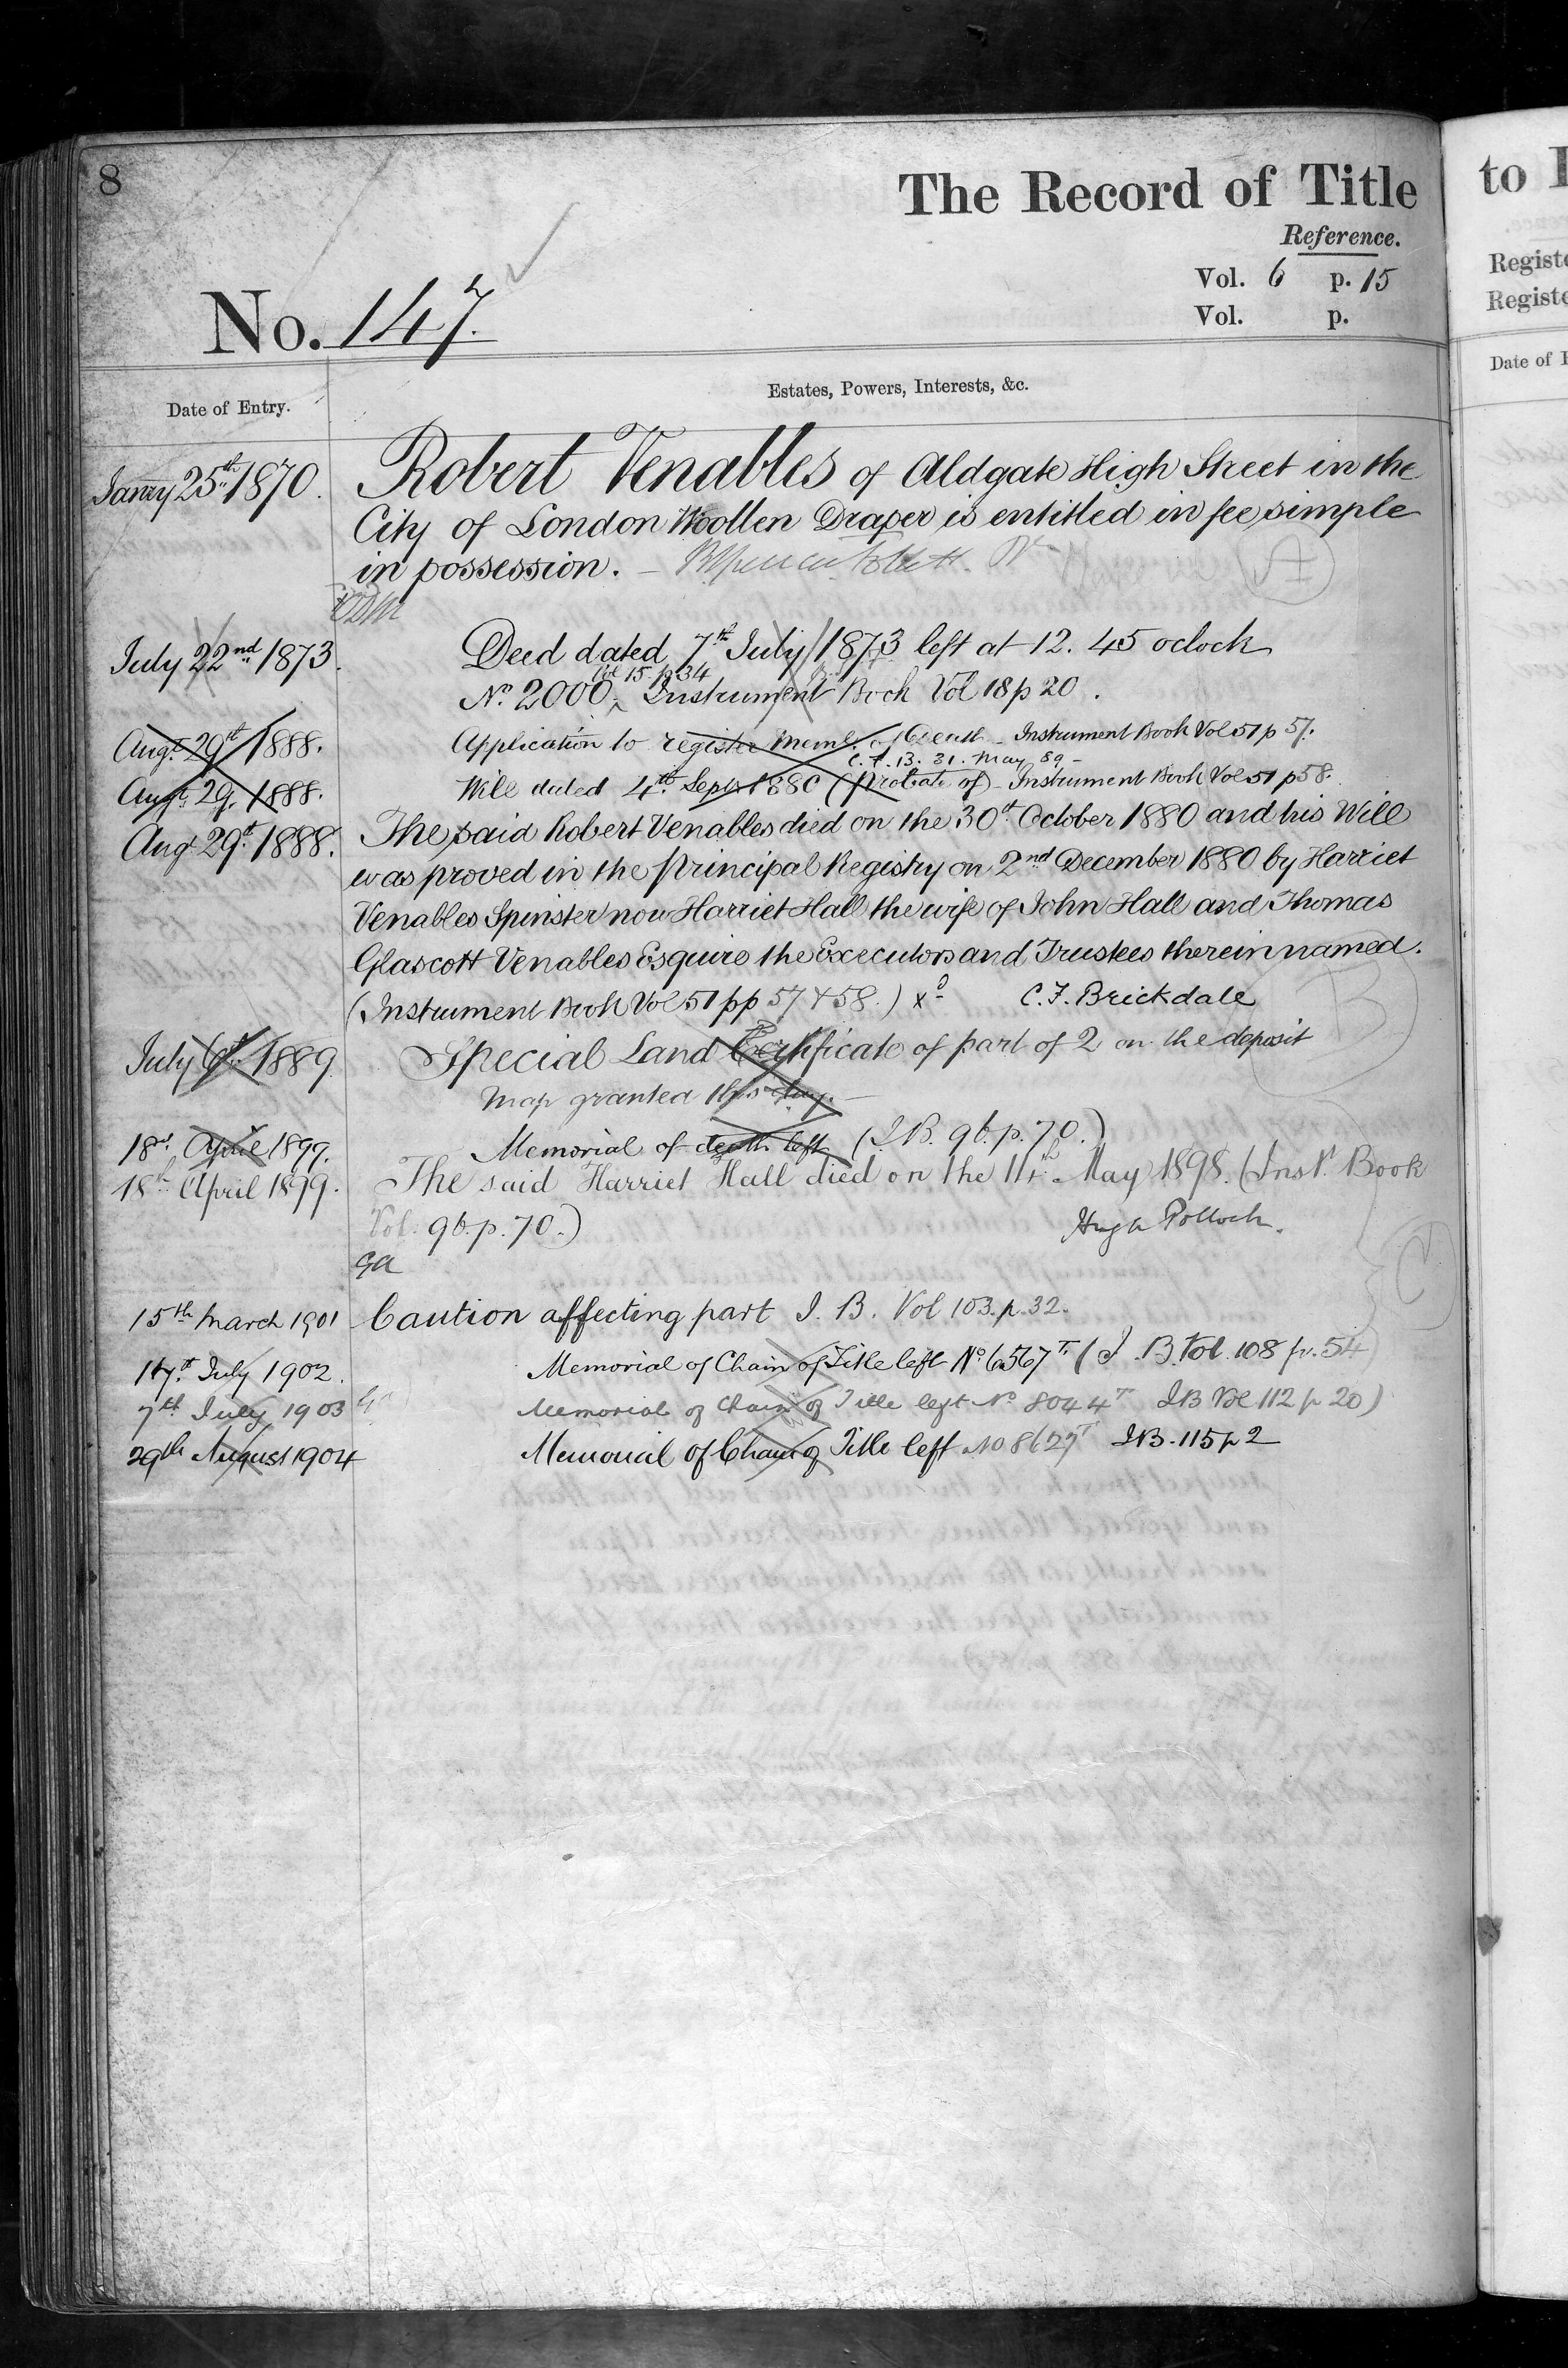 8
The Record of Title
Reference.
Vol. 6 p. 15
Vol. p.
No. 147.
Date of Entry.
Estates, Powers, Interests, &c.
Janry 25th 1870. Robert Venables of Aldgate High Street in the
City of London Woollen Draper is entitled in fee simple
in possession.
July 22nd 1873. Deed dated 7th July 1873 left at 12. 45 oclock
Vol 15 p 34
No. 2000, Instrument Book Vol 18 p 20.
Augt. 29th 1888. Application to register Meml. of Death - Instrument Book Vol 51 p 57.
C.F.B. 31. May 89 -
Augt. 29. 1888. Will dated 4th Septr 1880 (Probate of) - Instrument Book Vol 51 p 58.
Augt 29th 1888. The said Robert Venables died on the 30th October 1880 and his Will
was proved in the Principal Registry on 2nd December 1880 by Harriet
Venables Spinster now Harriet Hall the wife of John Hall and Thomas
Glascott Venables Esquire the Executors and Trustees therein named.
(Instrument Book Vol 51 pp 57 & 58.) xd C.F. Brickdale
B
July 6th 1889 Special Land Certificate of part of 2 on the deposit
map granted this day.
18th April 1899. Memorial of death left (I.B. 96. p. 70.)
18th April 1899. The said Harriet Hall died on the 14th May 1898. (Inst. Book
Vol. 96. p. 70.) Hugh Pollock.
GA
C
15th March 1901 Caution affecting part I. B. Vol 103. p. 32.
17th July 1902. Memorial of Chain of Title left No. 6567 T. (I. B. Vol. 108 p. 54
7th July 1903 Memorial of Chain of Title left No 8044 T IB Vol 112 p 20)
29th August 1904 Memorial of Chain of Title left No 8627 T IB. 115 p 2
to
Registe
Registe
Date of